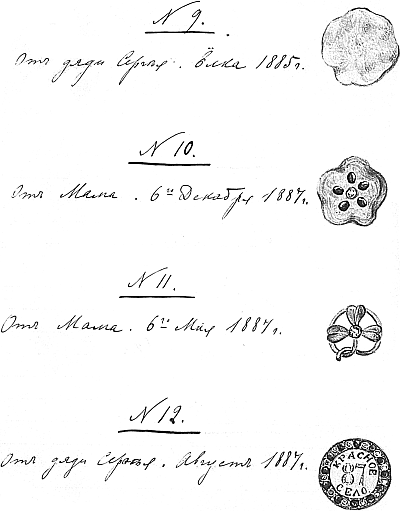 N 9.
Отъ дяди Сергѣя. Ёлка 1885г.
N 10.
Отъ Мама. 6го Декабря 1887г.
N 11.
Отъ Мама. 6го Мая 1887г.
N 12.
Отъ дяди Сергѣя. Августъ 1887г.
КРАСНОЕ
87
СЕЛО